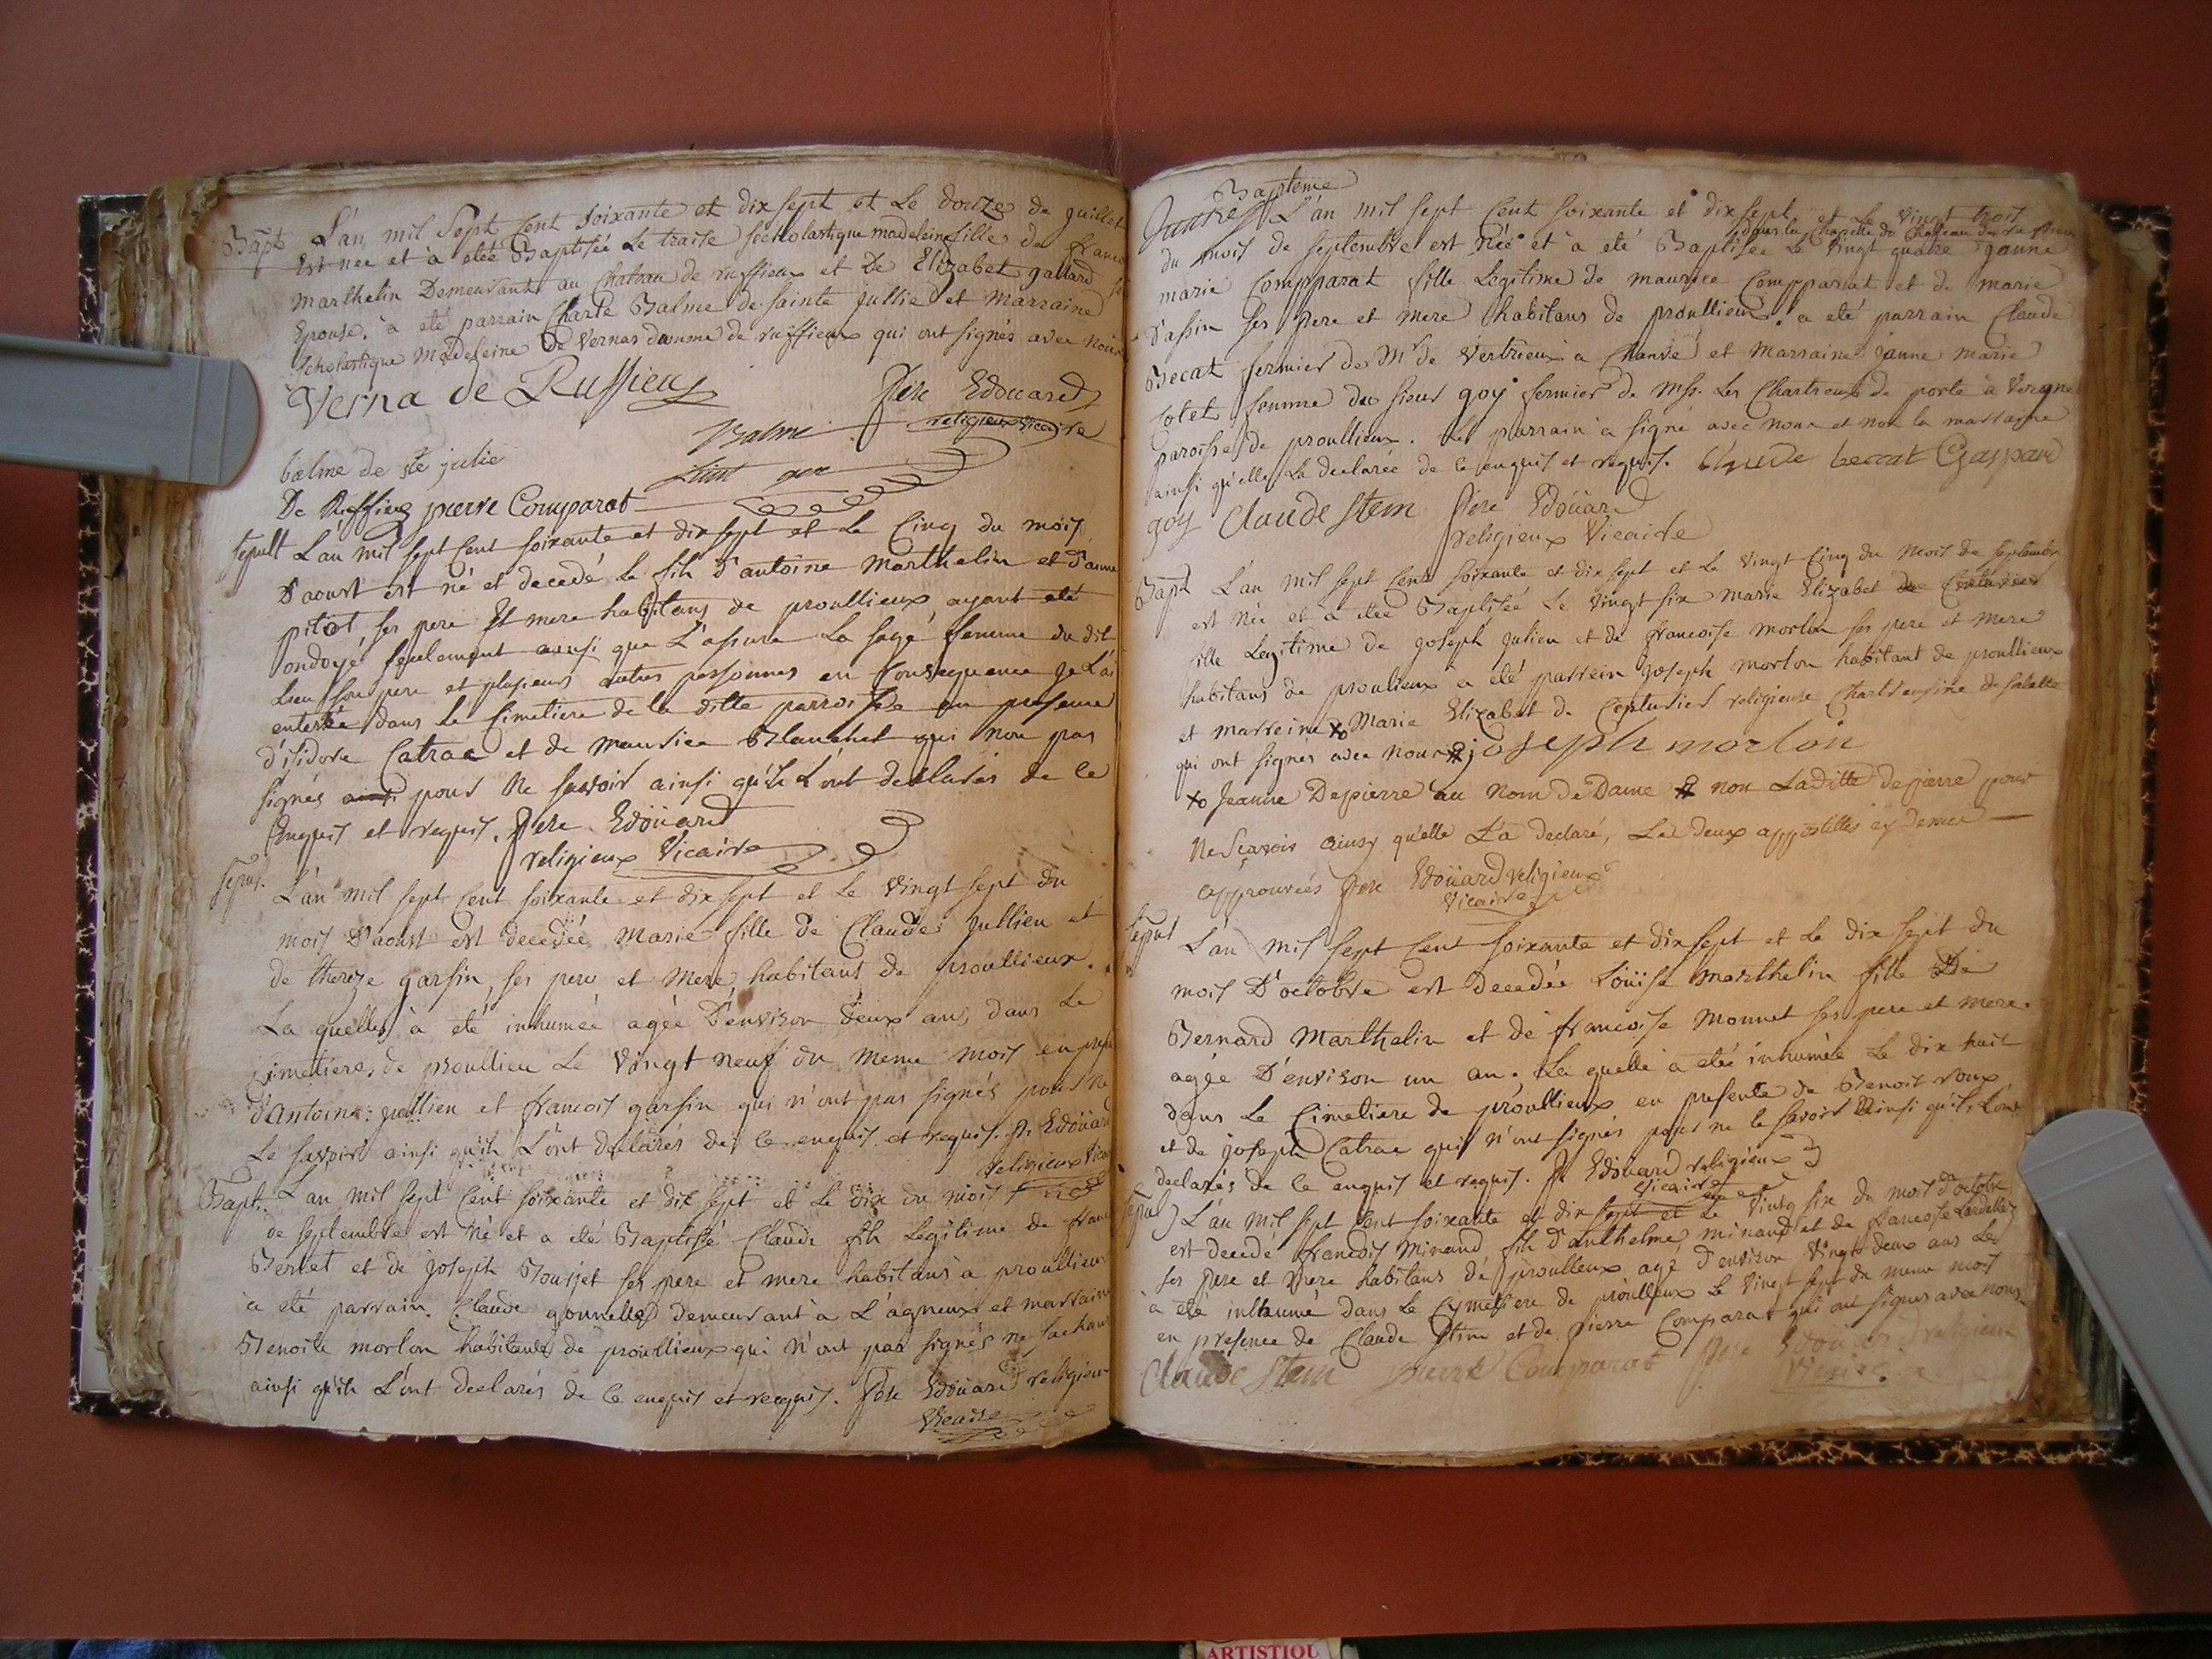 Bapt L'an mil Sept Cent soixante et dix sept et Le douze de juillet
Est née et à eteé Baptisée Le traise scholastique madeleine fille de franc
Marthelin Demeurant au Chateau de ruffieux et de Elizabet gallard
Epouse. à eté parrain Charle Balme de sainte jullie et Marraine
scholastique Madeleine de Vernas damme de ruffieux qui ont signés avec nous
Verna de Ruffieu
Pere Edouard
religieux vicaire
Balme
balme de ste julie
De Ruffieu pierre Comparat
sepult L'an mil sept Cent soixante et dix sept et Le Cinq du mois
D'aoust est né et decedé Le fils d'antoine Marthelin et d'anne
pitiot, ses pere et mere habitans de proullieux, ayant eté
ondoyé seulement ainsi que L'assure La sage femme du dit
Lieu son pere et plusieurs autres personnes en Consequence je L'ai
enterré dans Le Cimetiere de la ditte parroisse en presence
d'isidore Catrae et de maurice Blanchet qui non pas
signés ainsi pour Ne savoir ainsi qu'ils L'ont declarés de Ce
Enquis et requis. Pere Edoüard
religieux Vicaire
sepul. L'an mil sept Cent soixante et dix sept et Le Vingt sept du
mois D'aoust est decedée Marie fille de Claude Jullien et
de thereze garsin, ses pere et Mere, habitans de proullieux.
La quelle à eté inhumée agée D'environ deux ans, dans Le
Cimetiere de proullieu Le Vingt neuf du meme mois en pres
d'Antoine jullien et francois garsin qui n'ont pas signés pour ne
Le savoir ainsi qu'ils L'ont declarés de Ce enquis et requis. P. Edoüard
religieux Vicai
Bapt. L'an mil sept Cent soixante et dix sept et Le dix du mois
de septembre est Né et a eté Baptisé Claude fils Legitime de fran
Berlet et de Joseph Bourjet ses pere et mere habitans a proullieux
à eté parrain Claude gonnelle demeurant à L'agneux et marraine
Benoite morlon habitante de proullieux qui n'ont pas signés ne sachant
ainsi qu'ils L'ont declarés de Ce enquis et requis. Pere Edoüard religieux
Vicaire
Bapteme
L'an mil sept Cent soixante et dix sept et Le Vingt trois
dans la Chapelle du Chateau
du mois de septembre est née et à eté Baptisée Le Vingt quatre janne
marie Compparat fille Legitime de maurice Compparat et de marie
D'assin ses pere et mere habitans de proullieux. a eté parrain Claude
Becat fermier de Mr de Vertrieux a Chanve et Marraine janne marie
Cotet femme du sieur goy fermier de Mss. Les Chartreux de porte à Veregne
paroisse de proullieux. Le parrain a signé avec nous et non la marraine
ainsi qu'elle La declarée de Ce enquis et requis. Claude beccat Gaspard
goy Claude Stem Pere Edoüard
religieux Vicaire
Bapt L'an mil sept Cent soixante et dix sept et Le Vingt Cinq du Mois de septembre
est Née et à eteé Baptisée Le Vingt six Marie Elizabet
fille Legitime de joseph julien et de francoise morlon ses pere et Mere
habitans de proulieux a eté parrein joseph morlon habitant de proullieux
et marreine Marie Elizabet de Centurier religieuse Chartreusine de salette
qui ont signés avec nous joseph morlon
Jeanne Depierre au Nom de Dame non Laditte depierre pour
Ne Sçavoir ainsy quelle L'a declaré, Les deux appostilles cy dessus
approuvées Pere Edoüard religieux
Vicaire
sepul L'an mil sept Cent soixante et dix sept et Le dix sept du
mois D'octobre est Decedée Loüise Marthelin fille De
Bernard Marthelin et de francoise Monnet ses pere et mere.
agée D'environ un an. La quelle a eté inhumée Le dix huit
dans Le Cimetiere de proullieux en presente de Benoit roux
et de joseph Catrae qui n'ont signés pour ne le savoir ainsi qu'ils L'ont
declarés de Ce enquis et requis. Pe Edoüard religieux
Vicaire
sepul L'an mil sept Cent soixante et dix sept et Le Vingt six du mois D'octobre
est decedé francois Minaud, fils d'anthelme minaud et de francoise
ses pere et Mere habitans de proulleux agé d'environ Vingt deux ans Le
à eté inhumé dans Le Cymetiere de proulleux Le Vingt sept du meme mois
en presence de Claude Stem et de Pierre Comparat qui ont signés avec nous
Claude Stem pierre Comparat Pere Edoüard religieux
Vicaire
ARTISTIQU